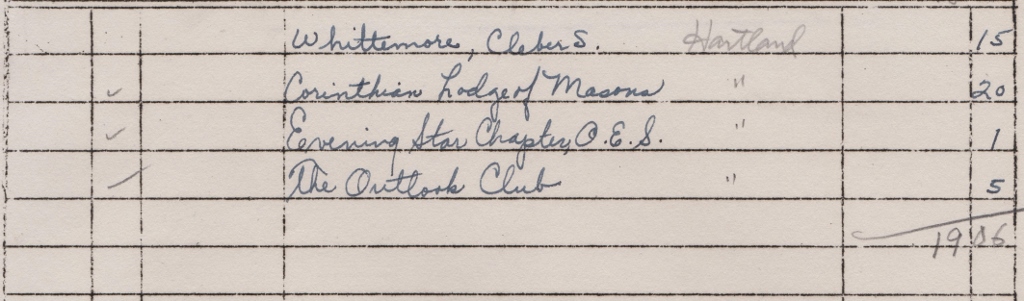 Whittemore, Cleber S. Hartland 15
✓ Corinthian Lodge of Masons " 20
✓ Evening Star Chapter, O.E.S. " 1
✓ The Outlook Club " 5